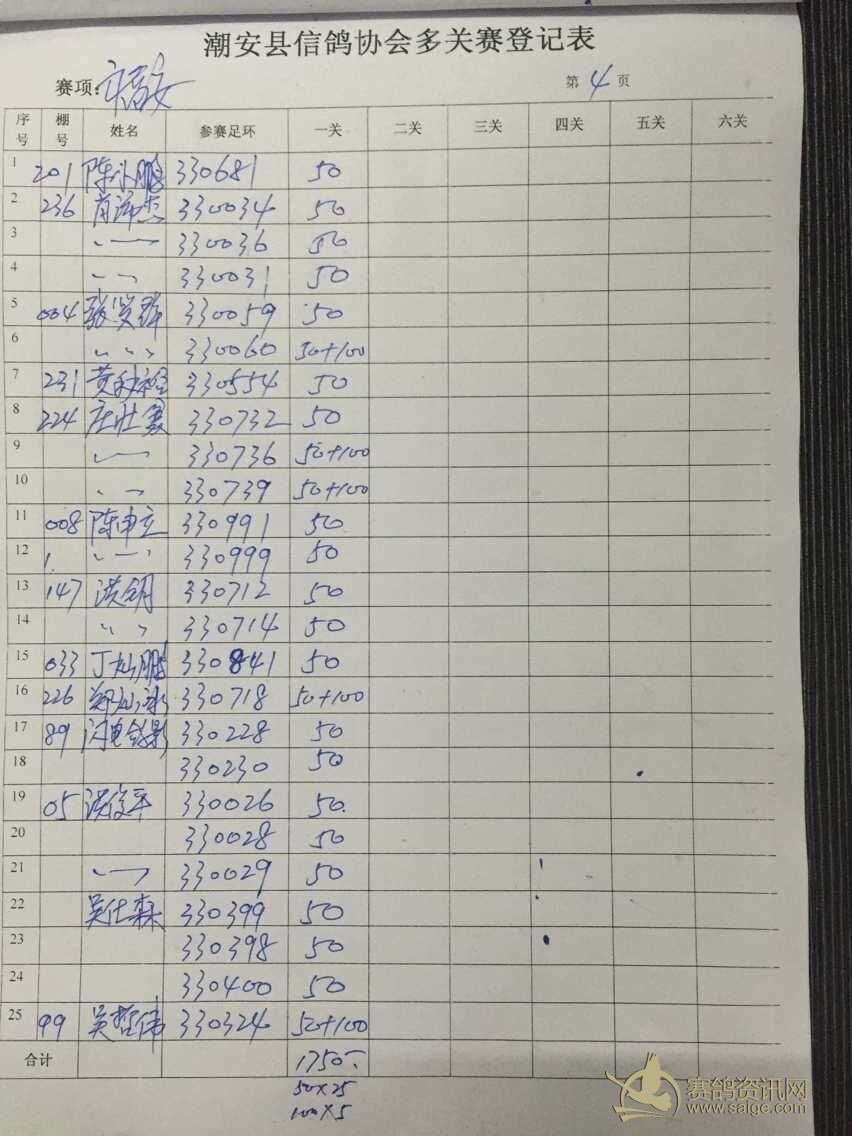 潮安县信鸽协会多关赛登记表
赛项: 第4页
序号 棚号 姓名 参赛足环 一关 二关 三关 四关 五关 六关
1 201 陈 鹏 330681 50
2 236 肖 杰 330034 50
3 330036 50
4 330031 50
5 004 张贤 330059 50
6 〃 〃 330060 50+100
7 231 黄 330554 50
8 224 庄壮 330732 50
9 330736 50+100
10 330739 50+100
11 008 陈申立 330991 50
12 330999 50
13 147 洪 330712 50
14 〃 〃 330714 50
15 033 丁灿鹏 330841 50
16 226 郑灿 330718 50+100
17 89 闪电 影 330228 50
18 330230 50
19 05 洪俊平 330026 50
20 330028 50
21 330029 50
22 吴仕森 330399 50
23 330398 50
24 330400 50
25 99 吴哲伟 330324 50+100
合计 1750
50×25
100×5
赛鸽资讯网
www.saige.com